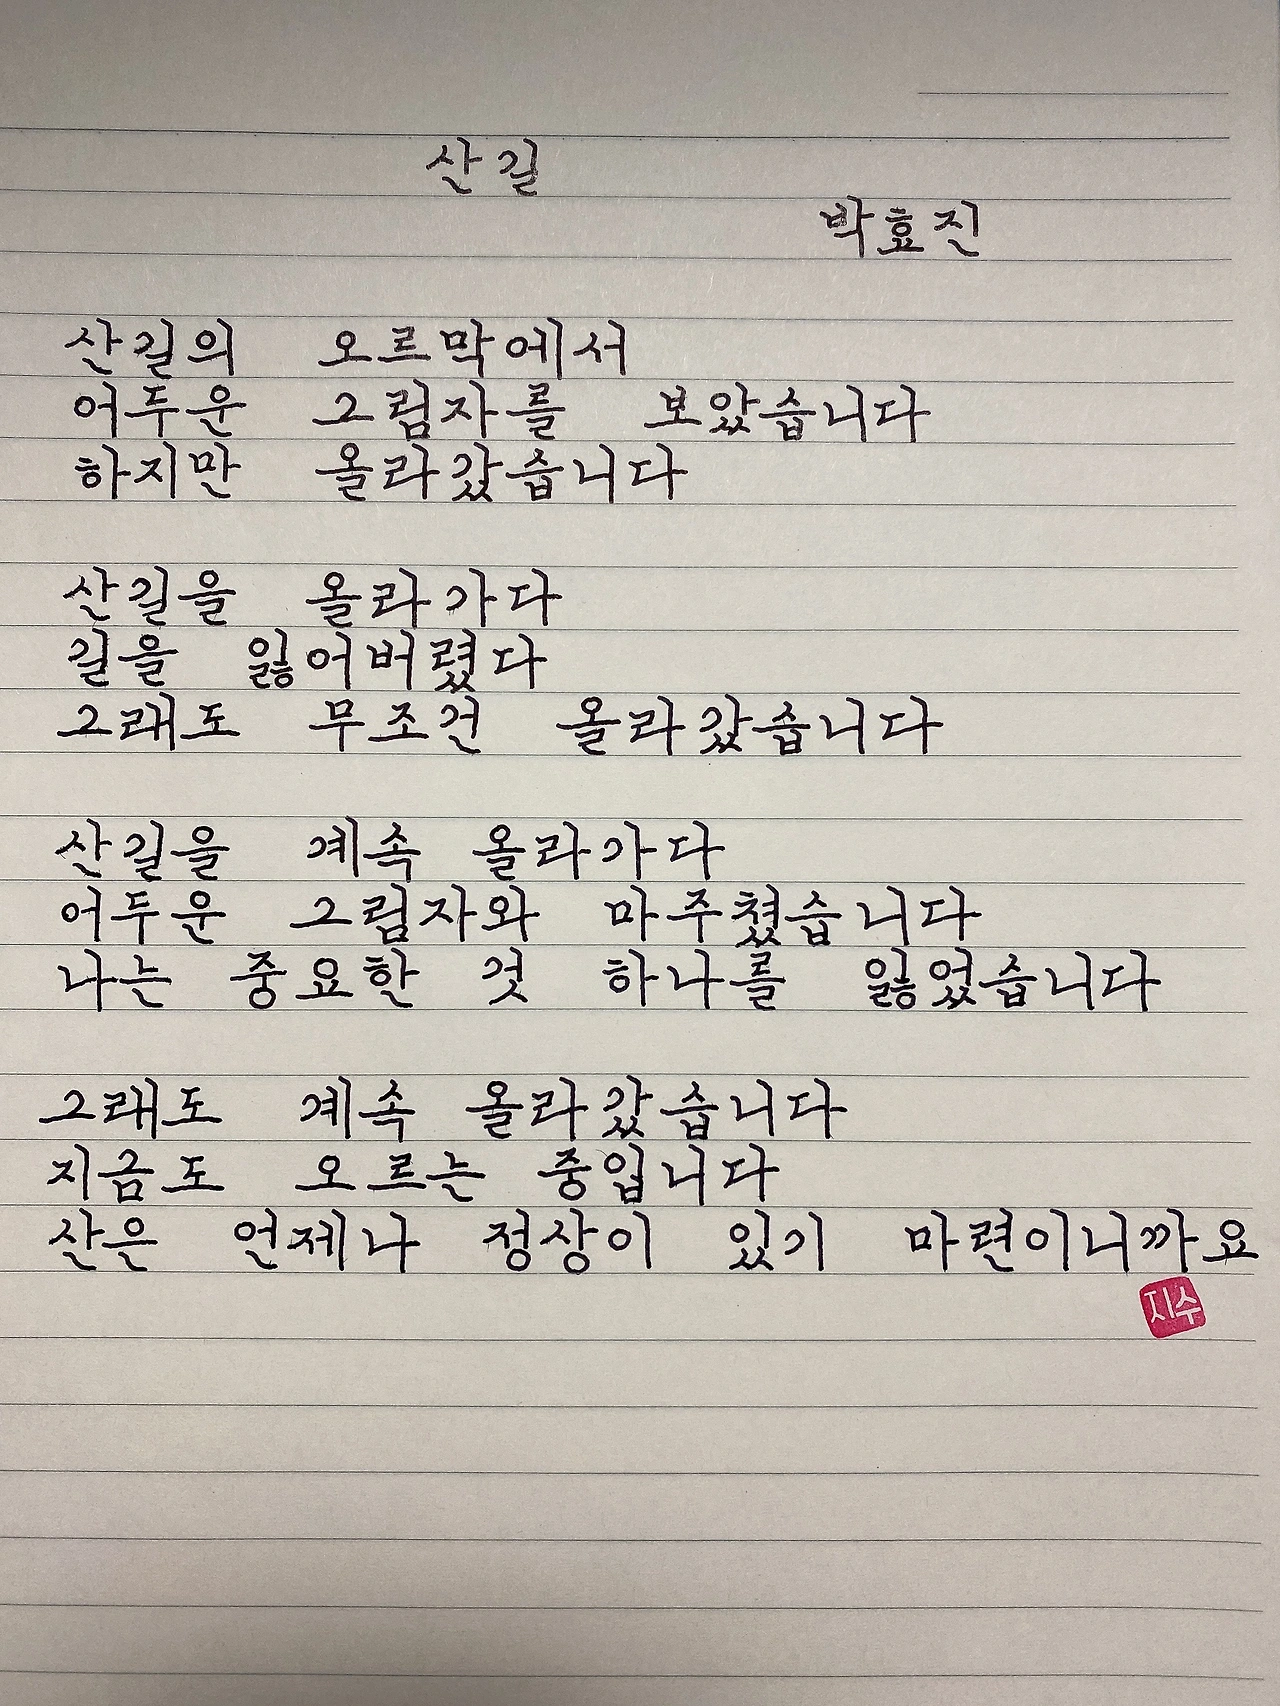 산길
박효진
산길의 오르막에서
어두운 그림자를 보았습니다
하지만 올라갔습니다
산길을 올라가다
길을 잃어버렸다
그래도 무조건 올라갔습니다
산길을 계속 올라가다
어두운 그림자와 마주쳤습니다
나는 중요한 것 하나를 잃었습니다
그래도 계속 올라갔습니다
지금도 오르는 중입니다
산은 언제나 정상이 있기 마련이니까요
지수